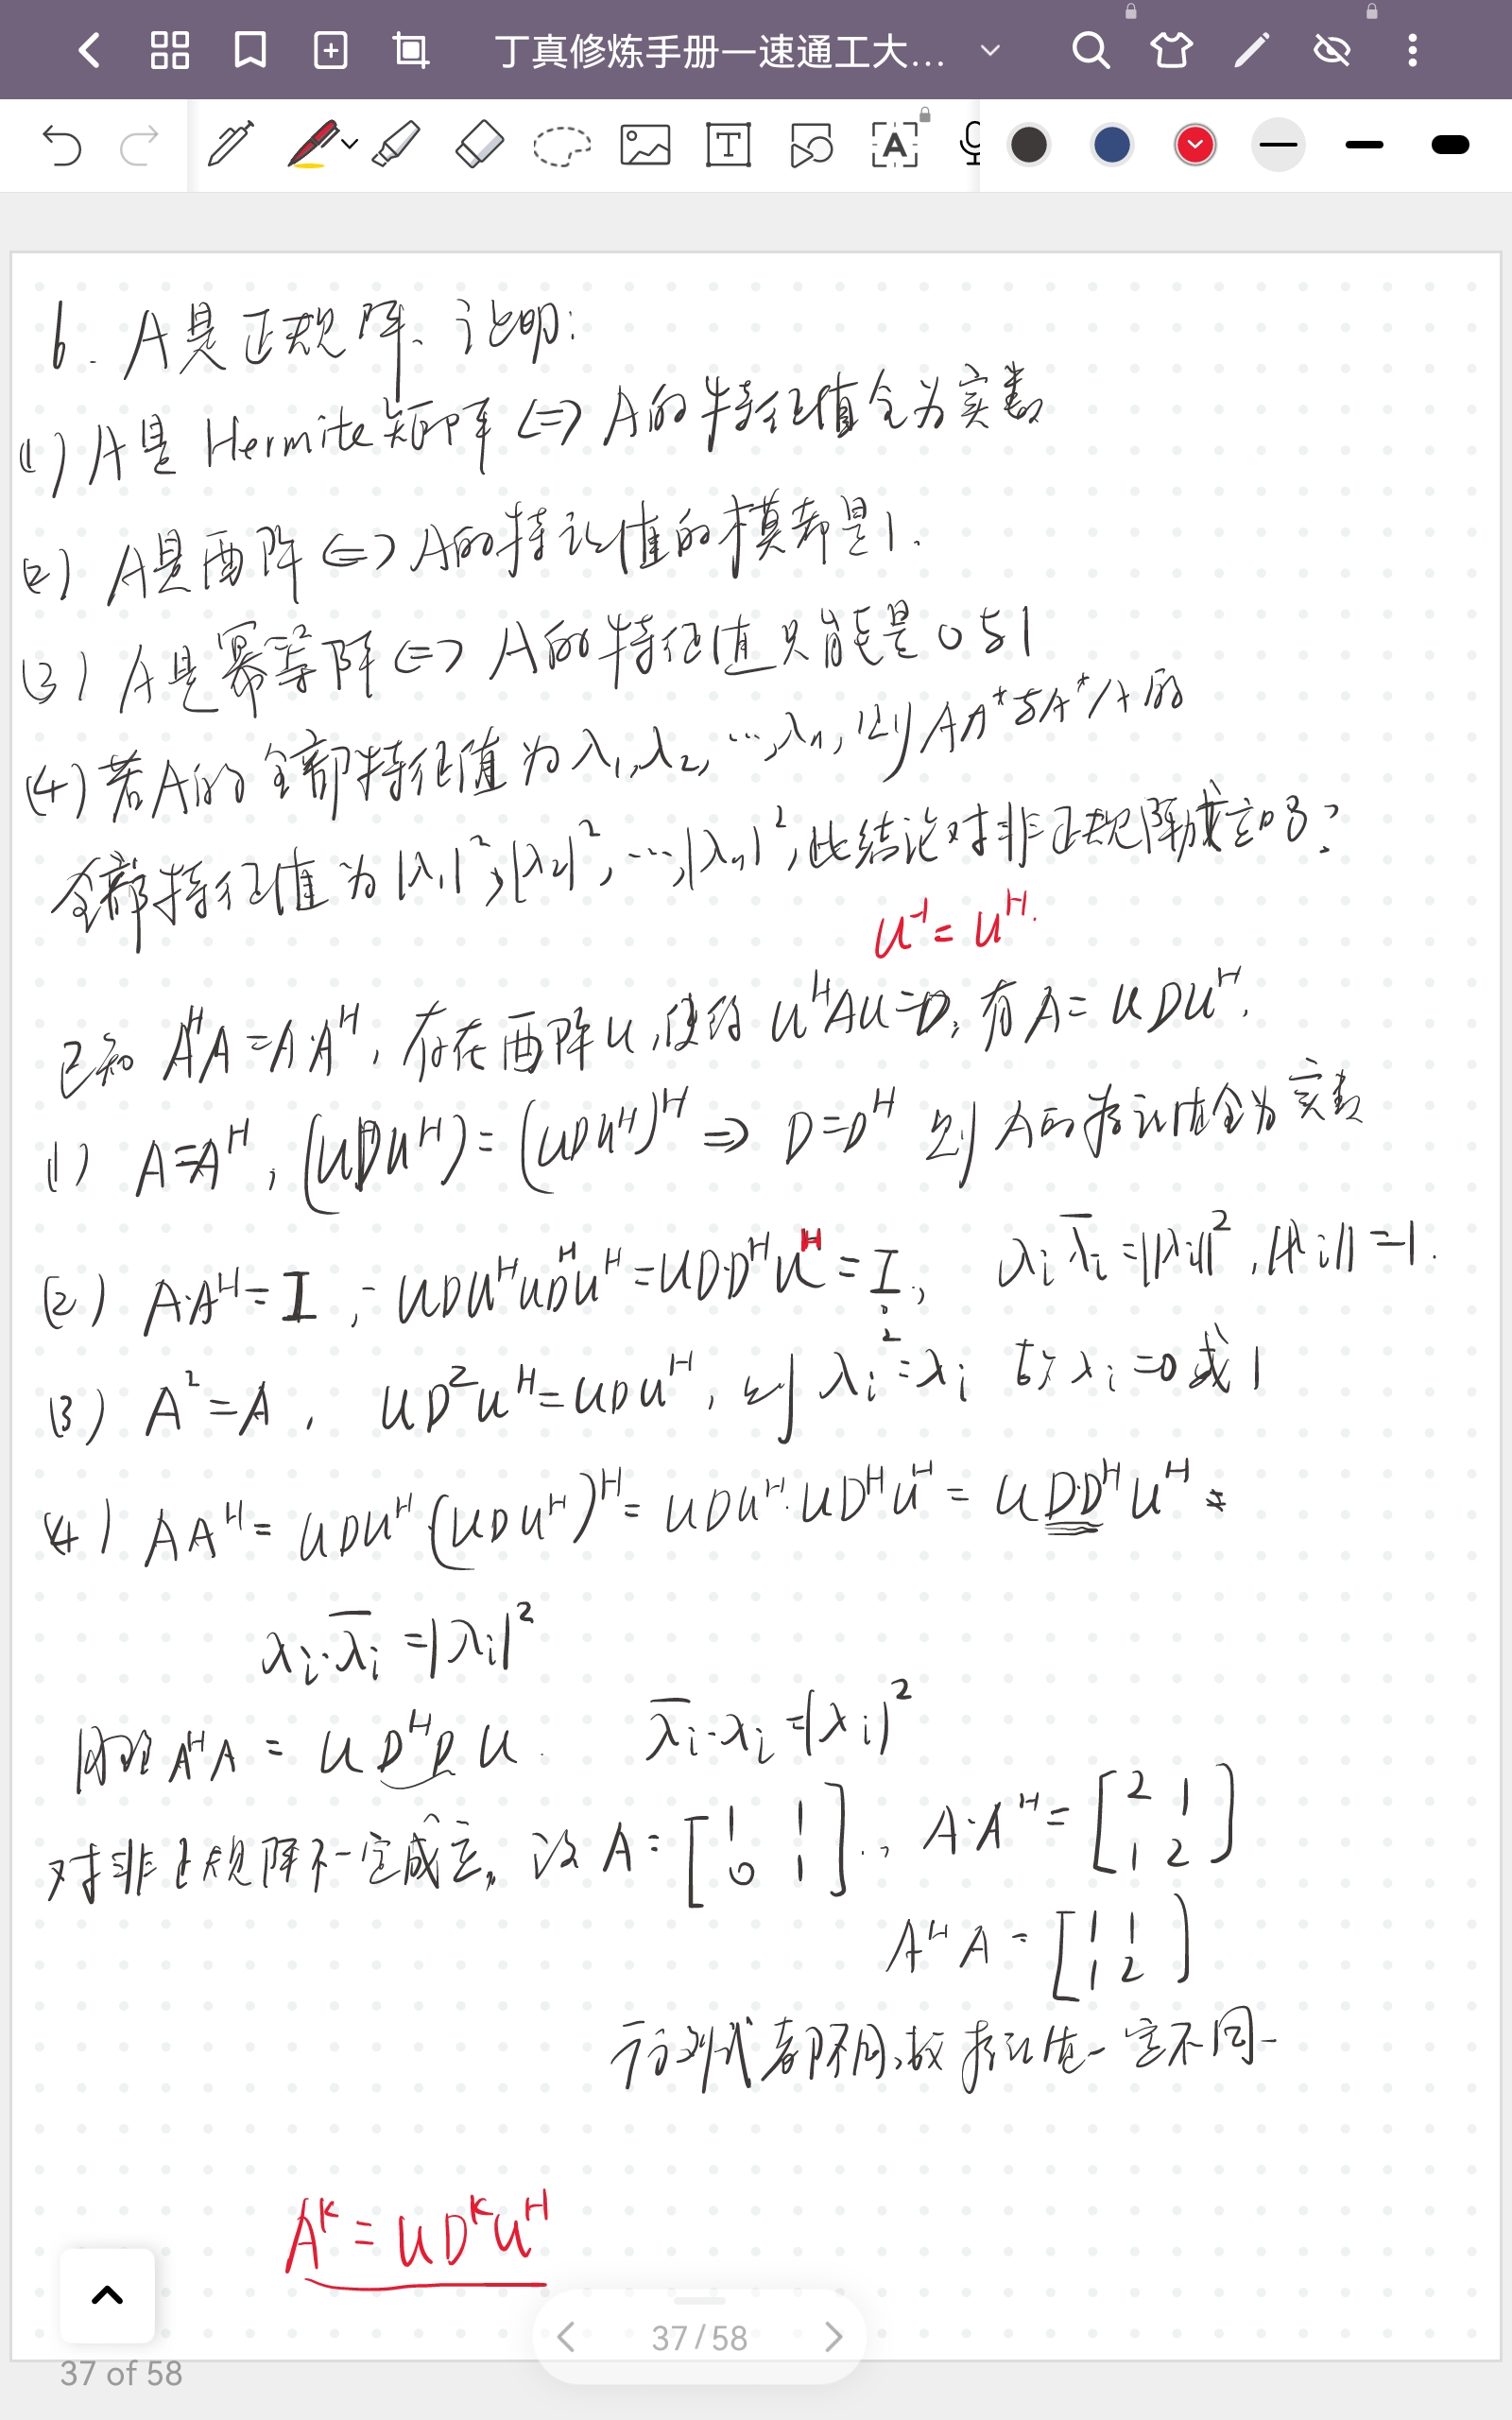 丁真修炼手册—速通工大...
6. A是正规阵、证明:
(1) A是Hermite矩阵 <=> A的特征值全为实数
(2) A是酉阵 <=> A的特征值的模都是1.
(3) A是幂等阵 <=> A的特征值只能是0与1
(4) 若A的全部特征值为λ₁,λ₂,…,λₙ,则AA*与A*A的
全部特征值为|λ₁|²,|λ₂|²,…,|λₙ|²,此结论对非正规阵成立吗?
U⁻¹ = Uᴴ.
已知 AᴴA = A·Aᴴ, 存在酉阵U,使得 UᴴAU=D, 有A = UDUᴴ.
(1) A=Aᴴ, (UDUᴴ) = (UDUᴴ)ᴴ => D=Dᴴ 则A的特征值全为实数
(2) A·Aᴴ = I, = UDUᴴUDᴴUᴴ = UD·DᴴUᴴ = I, λᵢλ̄ᵢ = ||λᵢ||², ||λᵢ|| = 1.
(3) A² = A, UD²Uᴴ = UDUᴴ, 则 λᵢ² = λᵢ 故λᵢ = 0或1
(4) AAᴴ = UDUᴴ·(UDUᴴ)ᴴ = UDUᴴ·UDᴴUᴴ = UD·DᴴUᴴ =
λᵢ·λ̄ᵢ = |λᵢ|²
同理 AᴴA = UDᴴDU. λ̄ᵢ·λᵢ = |λᵢ|²
对非正规阵不一定成立。设A = [1 1; 0 1]., A·Aᴴ = [2 1; 1 2]
AᴴA = [1 1; 1 2]
行列式都不同,故特征值一定不同
Aᴷ = UDᴷUᴴ
37/58
37 of 58